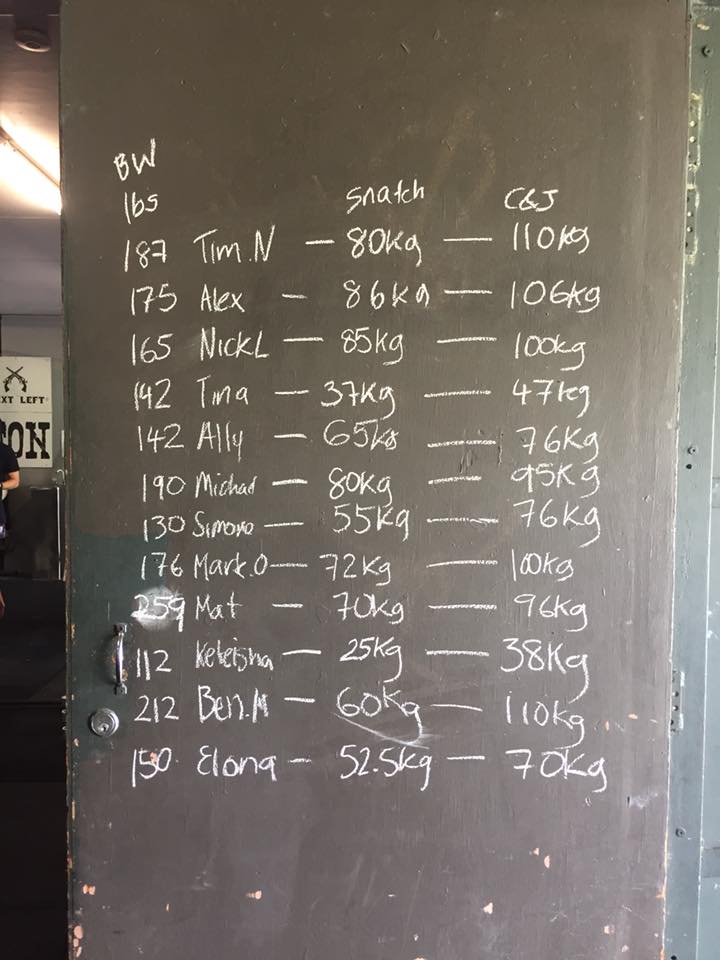 BW
lbs Snatch C&J
187 Tim.N — 80kg — 110kg
175 Alex — 86kg — 106kg
165 Nick L — 85kg — 100kg
142 Tina — 37kg — 47kg
142 Ally — 65kg — 76kg
190 Michael — 80kg — 95kg
130 Simone — 55kg — 76kg
176 Mark.O — 72kg — 100kg
259 Mat — 70kg — 96kg
112 Keleisha — 25kg — 38kg
212 Ben.M — 60kg — 110kg
150 Elona — 52.5kg — 70kg
EXT LEFT
ON